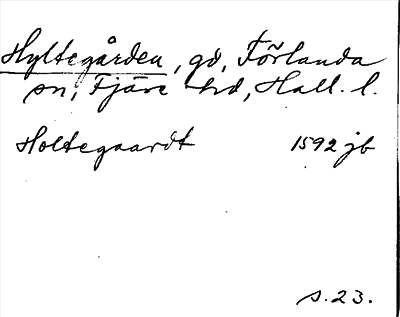 Hyltegården, gd, Förlanda
sn, Fjäre hd, Hall. l.
Holtegaardt 1592 jb
s. 23.